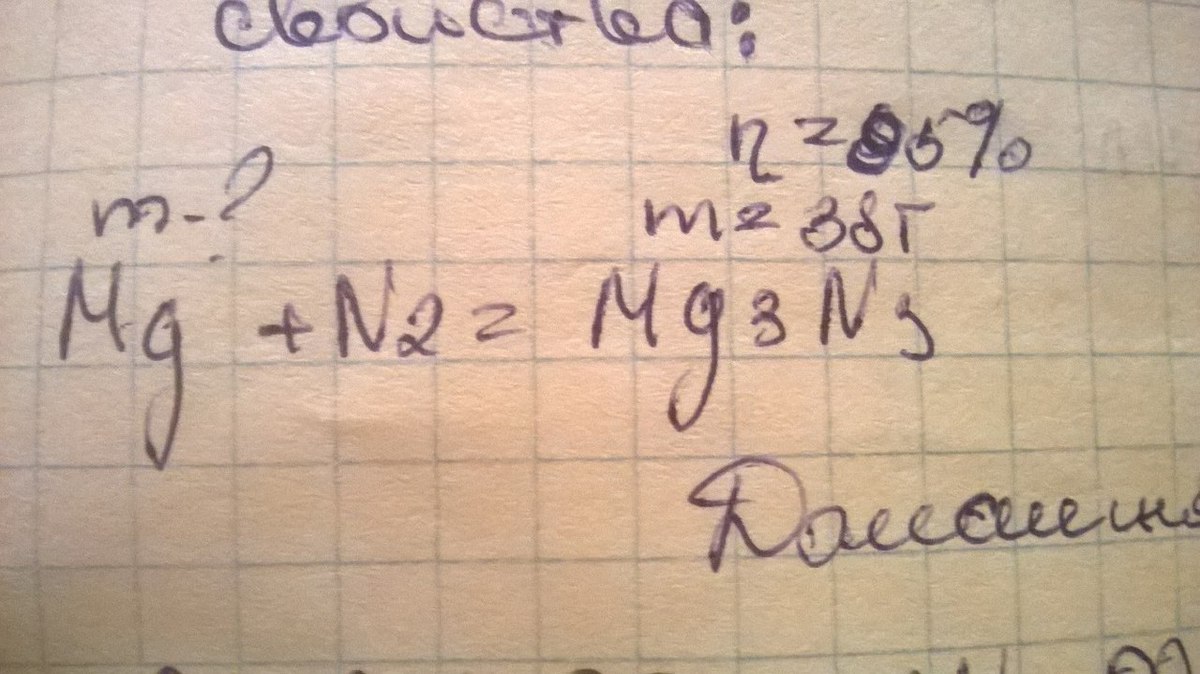 свойства:
η = 95%
m-? m = 38г
Mg + N2 = Mg3N3
Домашня